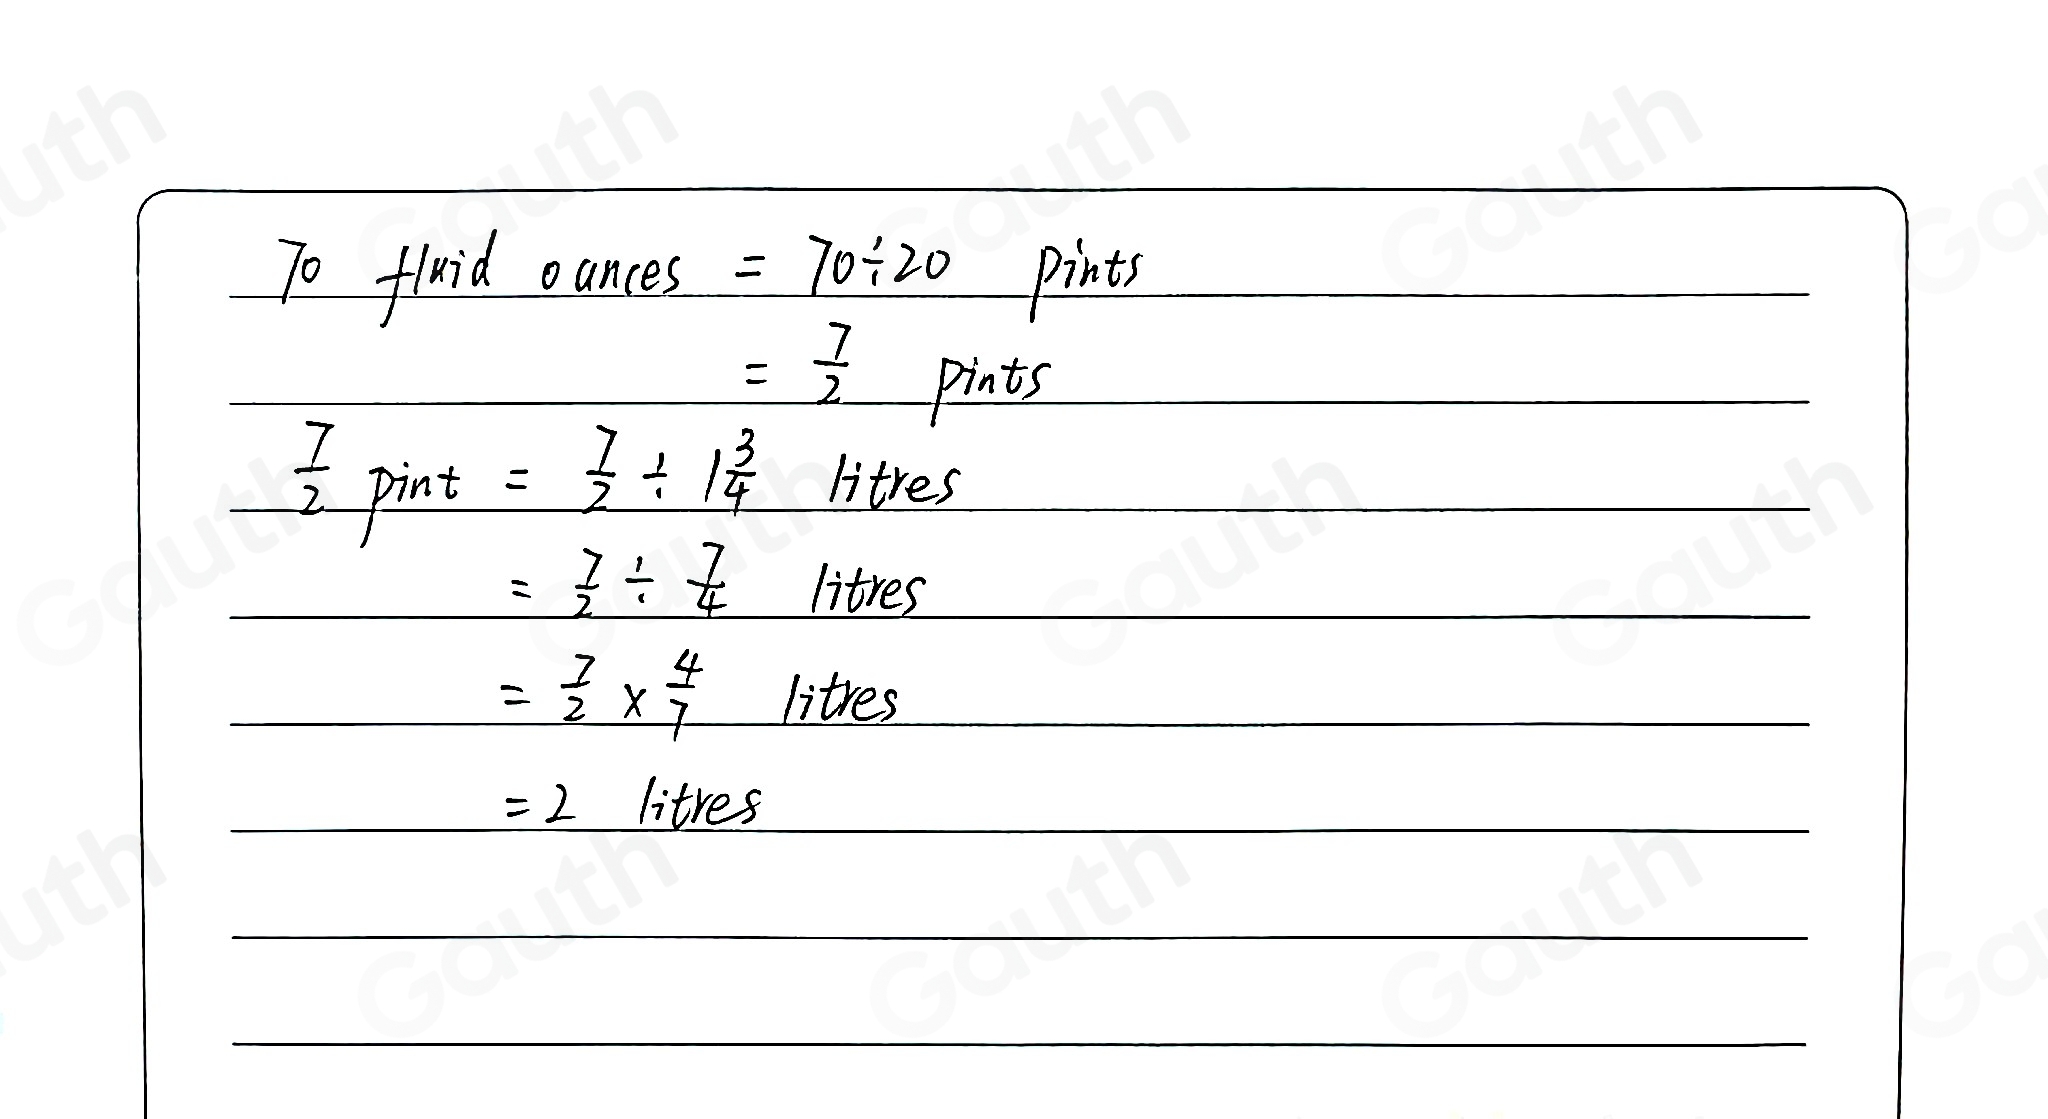 70 fluid ounces = 70÷20 pints
= 7/2 pints
7/2 pint = 7/2 ÷ 1 3/4 litres
= 7/2 ÷ 7/4 litres
= 7/2 × 4/7 litres
= 2 litres
Gauth